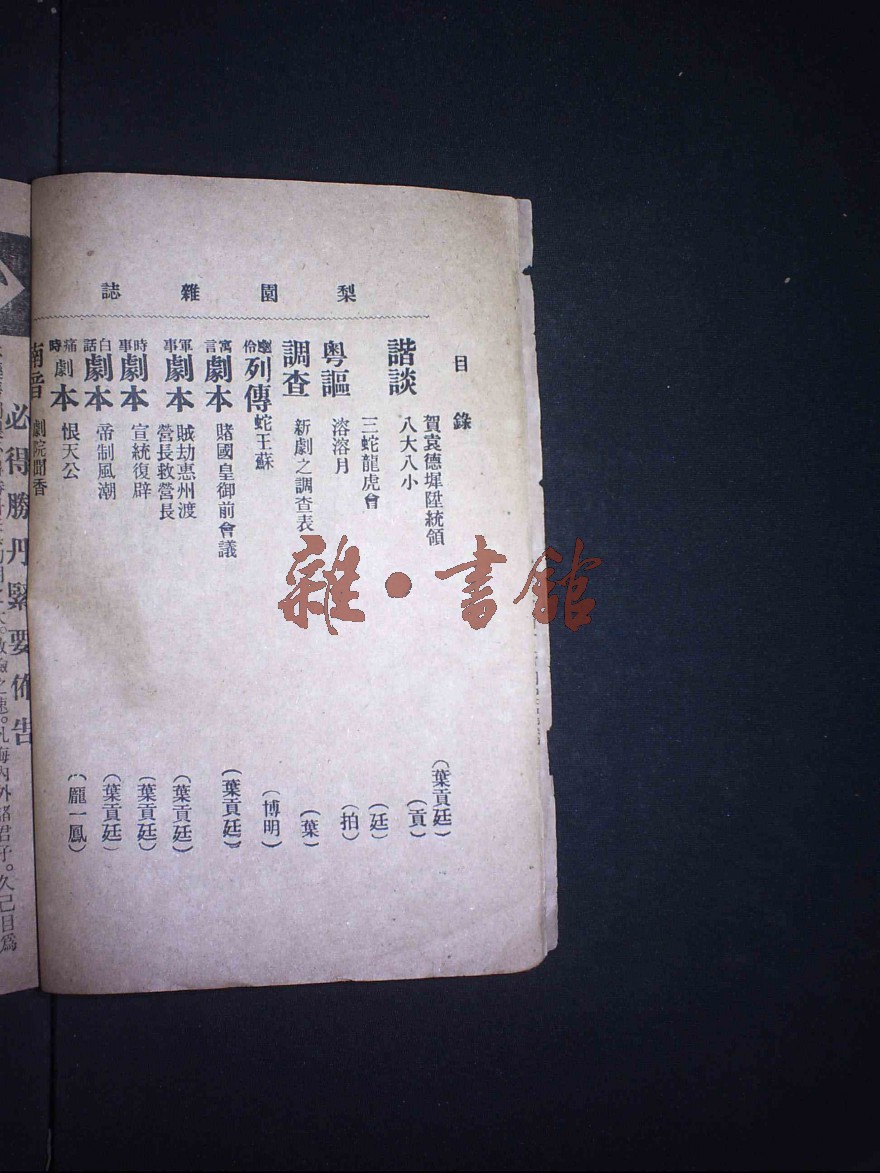 梨園雜誌
目錄
賀袁德墀陞統領 (葉貢廷)
諧談 八大八小 (貢)
三蛇龍虎會 (廷)
粵謳 溶溶月 (拍)
調查 新劇之調查表 (葉)
優伶列傳 蛇王蘇 (博明)
寓言劇本 賭國皇御前會議 (葉貢廷)
軍事劇本 賊劫惠州渡 營長救營長 (葉貢廷)
時事劇本 宣統復辟 (葉貢廷)
白話劇本 帝制風潮 (葉貢廷)
痛時劇本 恨天公 (龐一鳳)
南音 劇院聞香
必得勝丹緊要佈告
海內外諸君子。久已目為
雜·書館